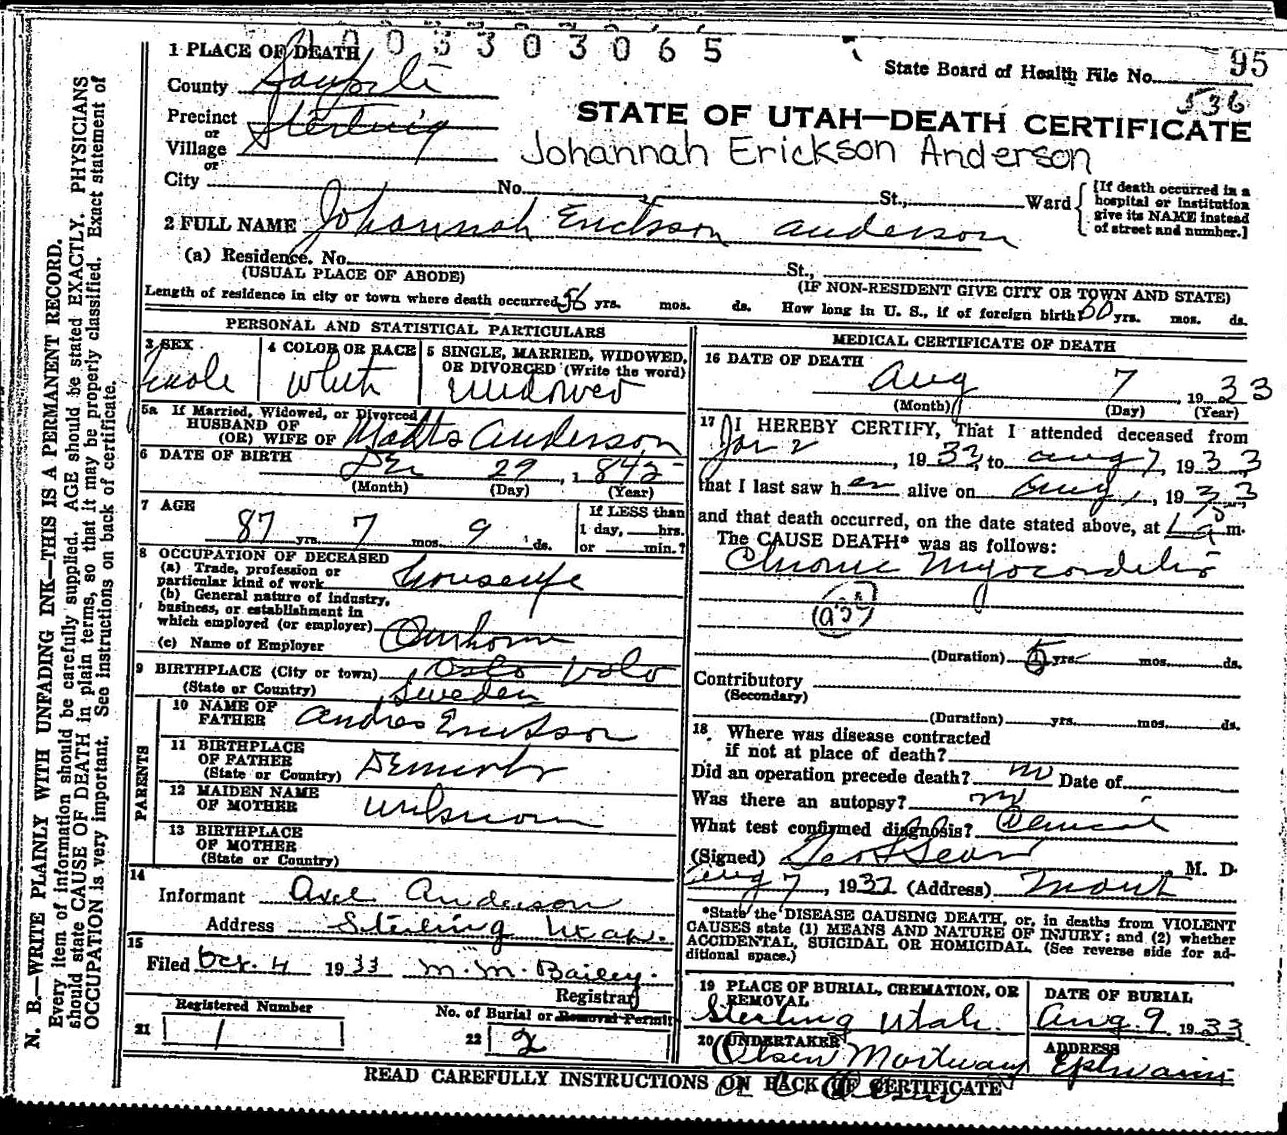 1 0 0 3 3 0 3 0 6 5
95
1 PLACE OF DEATH
State Board of Health File No.
536
County Sanpete
STATE OF UTAH—DEATH CERTIFICATE
Precinct
or
Village Sterling
or
Johannah Erickson Anderson
City No. St., Ward
{If death occurred in a
hospital or institution
give its NAME instead
of street and number.]
2 FULL NAME Johannah Erickson Anderson
(a) Residence. No. St.,
(USUAL PLACE OF ABODE) (IF NON-RESIDENT GIVE CITY OR TOWN AND STATE)
Length of residence in city or town where death occurred 56 yrs. mos. ds. How long in U. S., if of foreign birth? 60 yrs. mos. ds.
PERSONAL AND STATISTICAL PARTICULARS
3 SEX
Female
4 COLOR OR RACE
White
5 SINGLE, MARRIED, WIDOWED,
OR DIVORCED (Write the word)
Widowed
5a If Married, Widowed, or Divorced
HUSBAND OF
(OR) WIFE OF Matts Anderson
6 DATE OF BIRTH
Dec 29, 1845
(Month) (Day) (Year)
7 AGE
87 yrs. 7 mos. 9 ds.
If LESS than
1 day, hrs.
or min.?
8 OCCUPATION OF DECEASED
(a) Trade, profession or
particular kind of work Housewife
(b) General nature of industry,
business, or establishment in
which employed (or employer) Own home
(c) Name of Employer
9 BIRTHPLACE (City or town) Oslo Volo
(State or Country) Sweden
PARENTS
10 NAME OF
FATHER Andres Erickson
11 BIRTHPLACE
OF FATHER
(State or Country) Denmark
12 MAIDEN NAME
OF MOTHER unknown
13 BIRTHPLACE
OF MOTHER
(State or Country)
14
Informant Axel Anderson
Address Sterling Utah.
15
Filed Oct. 4 1933 M. M. Bailey.
Registrar
Registered Number
21 1
No. of Burial or Removal Permit
22 2
MEDICAL CERTIFICATE OF DEATH
16 DATE OF DEATH
Aug 7, 1933
(Month) (Day) (Year)
17 I HEREBY CERTIFY, That I attended deceased from
Jan 2, 1933, to Aug 7, 1933
that I last saw her alive on Aug 1, 1933
and that death occurred, on the date stated above, at m.
The CAUSE DEATH* was as follows:
Chronic Myocarditis
(Duration) 5 yrs. mos. ds.
Contributory
(Secondary)
(Duration) yrs. mos. ds.
18. Where was disease contracted
if not at place of death?
Did an operation precede death? no Date of
Was there an autopsy? no
What test confirmed diagnosis? Clinical
(Signed) M. D.
Aug 7, 1933 (Address) Manti
*State the DISEASE CAUSING DEATH, or, in deaths from VIOLENT
CAUSES state (1) MEANS AND NATURE OF INJURY; and (2) whether
ACCIDENTAL, SUICIDAL OR HOMICIDAL. (See reverse side for ad-
ditional space.)
19 PLACE OF BURIAL, CREMATION, OR
REMOVAL
Sterling Utah.
DATE OF BURIAL
Aug. 9 1933
20 UNDERTAKER
Olsen Mortuary
ADDRESS
Ephraim
READ CAREFULLY INSTRUCTIONS ON BACK OF CERTIFICATE
N. B.—WRITE PLAINLY WITH UNFADING INK—THIS IS A PERMANENT RECORD.
Every item of information should be carefully supplied. AGE should be stated EXACTLY. PHYSICIANS
should state CAUSE OF DEATH in plain terms, so that it may be properly classified. Exact statement of
OCCUPATION is very important. See instructions on back of certificate.